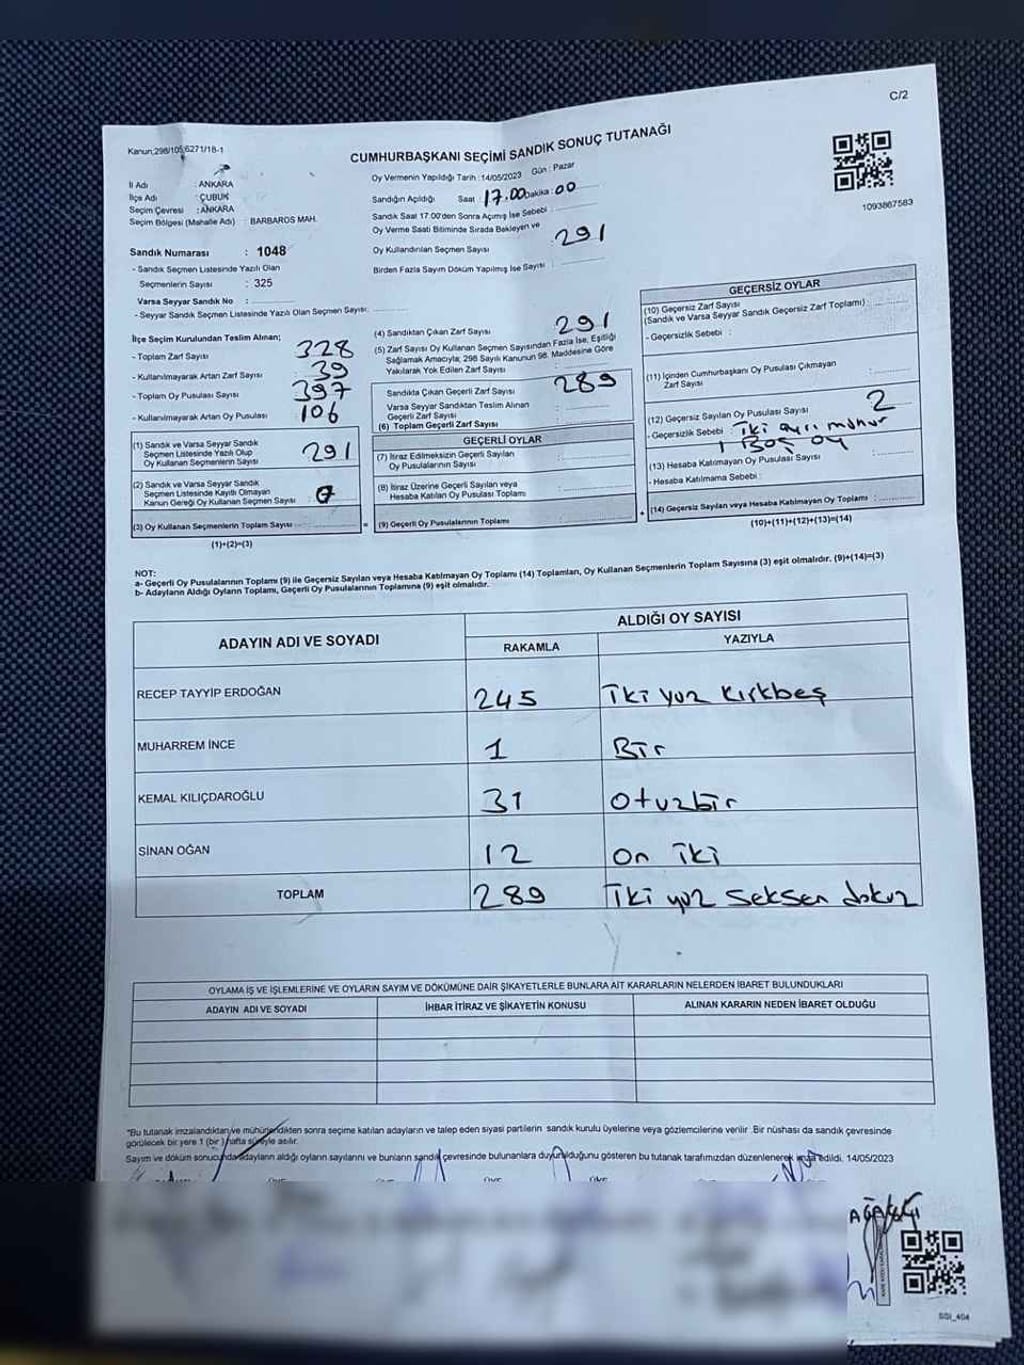 C/2
Kanun;298/105;6271/18-1
CUMHURBAŞKANI SEÇİMİ SANDIK SONUÇ TUTANAĞI
1093867583
İl Adı : ANKARA
İlçe Adı : ÇUBUK
Seçim Çevresi : ANKARA
Seçim Bölgesi (Mahalle Adı) : BARBAROS MAH.
Sandık Numarası : 1048
- Sandık Seçmen Listesinde Yazılı Olan
Seçmenlerin Sayısı : 325
Varsa Seyyar Sandık No :
- Seyyar Sandık Seçmen Listesinde Yazılı Olan Seçmen Sayısı:
İlçe Seçim Kurulundan Teslim Alınan;
- Toplam Zarf Sayısı 328
- Kullanılmayarak Artan Zarf Sayısı 39
- Toplam Oy Pusulası Sayısı 397
- Kullanılmayarak Artan Oy Pusulası 106
(1) Sandık ve Varsa Seyyar Sandık
Seçmen Listesinde Yazılı Olup
Oy Kullanan Seçmenlerin Sayısı 291
(2) Sandık ve Varsa Seyyar Sandık
Seçmen Listesinde Kayıtlı Olmayan
Kanun Gereği Oy Kullanan Seçmen Sayısı :
(3) Oy Kullanan Seçmenlerin Toplam Sayısı : =
(1)+(2)=(3)
Oy Vermenin Yapıldığı Tarih : 14/05/2023 Gün : Pazar
Sandığın Açıldığı Saat : 17.00 Dakika : 00
Sandık Saat 17:00'den Sonra Açımış İse Sebebi :
Oy Verme Saati Bitiminde Sırada Bekleyen ve
Oy Kullandırılan Seçmen Sayısı : 291
Birden Fazla Sayım Döküm Yapılmış İse Sayısı :
(4) Sandıktan Çıkan Zarf Sayısı 291
(5) Zarf Sayısı Oy Kullanan Seçmen Sayısından Fazla İse, Eşitliği
Sağlamak Amacıyla; 298 Sayılı Kanunun 98. Maddesine Göre
Yakılarak Yok Edilen Zarf Sayısı :
Sandıkta Çıkan Geçerli Zarf Sayısı 289
Varsa Seyyar Sandıktan Teslim Alınan
Geçerli Zarf Sayısı :
(6) Toplam Geçerli Zarf Sayısı :
GEÇERLİ OYLAR
(7) İtiraz Edilmeksizin Geçerli Sayılan
Oy Pusulalarının Sayısı :
(8) İtiraz Üzerine Geçerli Sayılan veya
Hesaba Katılan Oy Pusulası Toplamı :
(9) Geçerli Oy Pusulalarının Toplamı : +
GEÇERSİZ OYLAR
(10) Geçersiz Zarf Sayısı
(Sandık ve Varsa Seyyar Sandık Geçersiz Zarf Toplamı) :
- Geçersizlik Sebebi :
(11) İçinden Cumhurbaşkanı Oy Pusulası Çıkmayan
Zarf Sayısı :
(12) Geçersiz Sayılan Oy Pusulası Sayısı 2
- Geçersizlik Sebebi : iki ayrı mühür
1 Boş oy
(13) Hesaba Katılmayan Oy Pusulası Sayısı :
- Hesaba Katılmama Sebebi :
(14) Geçersiz Sayılan veya Hesaba Katılmayan Oy Toplamı :
(10)+(11)+(12)+(13)=(14)
NOT:
a- Geçerli Oy Pusulalarının Toplamı (9) ile Geçersiz Sayılan veya Hesaba Katılmayan Oy Toplamı (14) Toplamları, Oy Kullanan Seçmenlerin Toplam Sayısına (3) eşit olmalıdır. (9)+(14)=(3)
b- Adayların Aldığı Oyların Toplamı, Geçerli Oy Pusulalarının Toplamına (9) eşit olmalıdır.
ADAYIN ADI VE SOYADI ALDIĞI OY SAYISI
RAKAMLA YAZIYLA
RECEP TAYYİP ERDOĞAN 245 iki yüz kırkbeş
MUHARREM İNCE 1 Bir
KEMAL KILIÇDAROĞLU 31 otuzbir
SİNAN OĞAN 12 on iki
TOPLAM 289 iki yüz seksen dokuz
OYLAMA İŞ VE İŞLEMLERİNE VE OYLARIN SAYIM VE DÖKÜMÜNE DAİR ŞİKAYETLERLE BUNLARA AİT KARARLARIN NELERDEN İBARET BULUNDUKLARI
ADAYIN ADI VE SOYADI İHBAR İTİRAZ VE ŞİKAYETİN KONUSU ALINAN KARARIN NEDEN İBARET OLDUĞU
"Bu tutanak imzalandıktan ve mühürlendikten sonra seçime katılan adayların ve talep eden siyasi partilerin sandık kurulu üyelerine veya gözlemcilerine verilir .Bir nüshası da sandık çevresinde
görülecek bir yere 1 (bir ) hafta süreyle asılır.
Sayım ve döküm sonucunda adayların aldığı oyların sayılarını ve bunların sandık çevresinde bulunanlara duyurulduğunu gösteren bu tutanak tarafımızdan düzenlenerek imza edildi. 14/05/2023
SSI_404